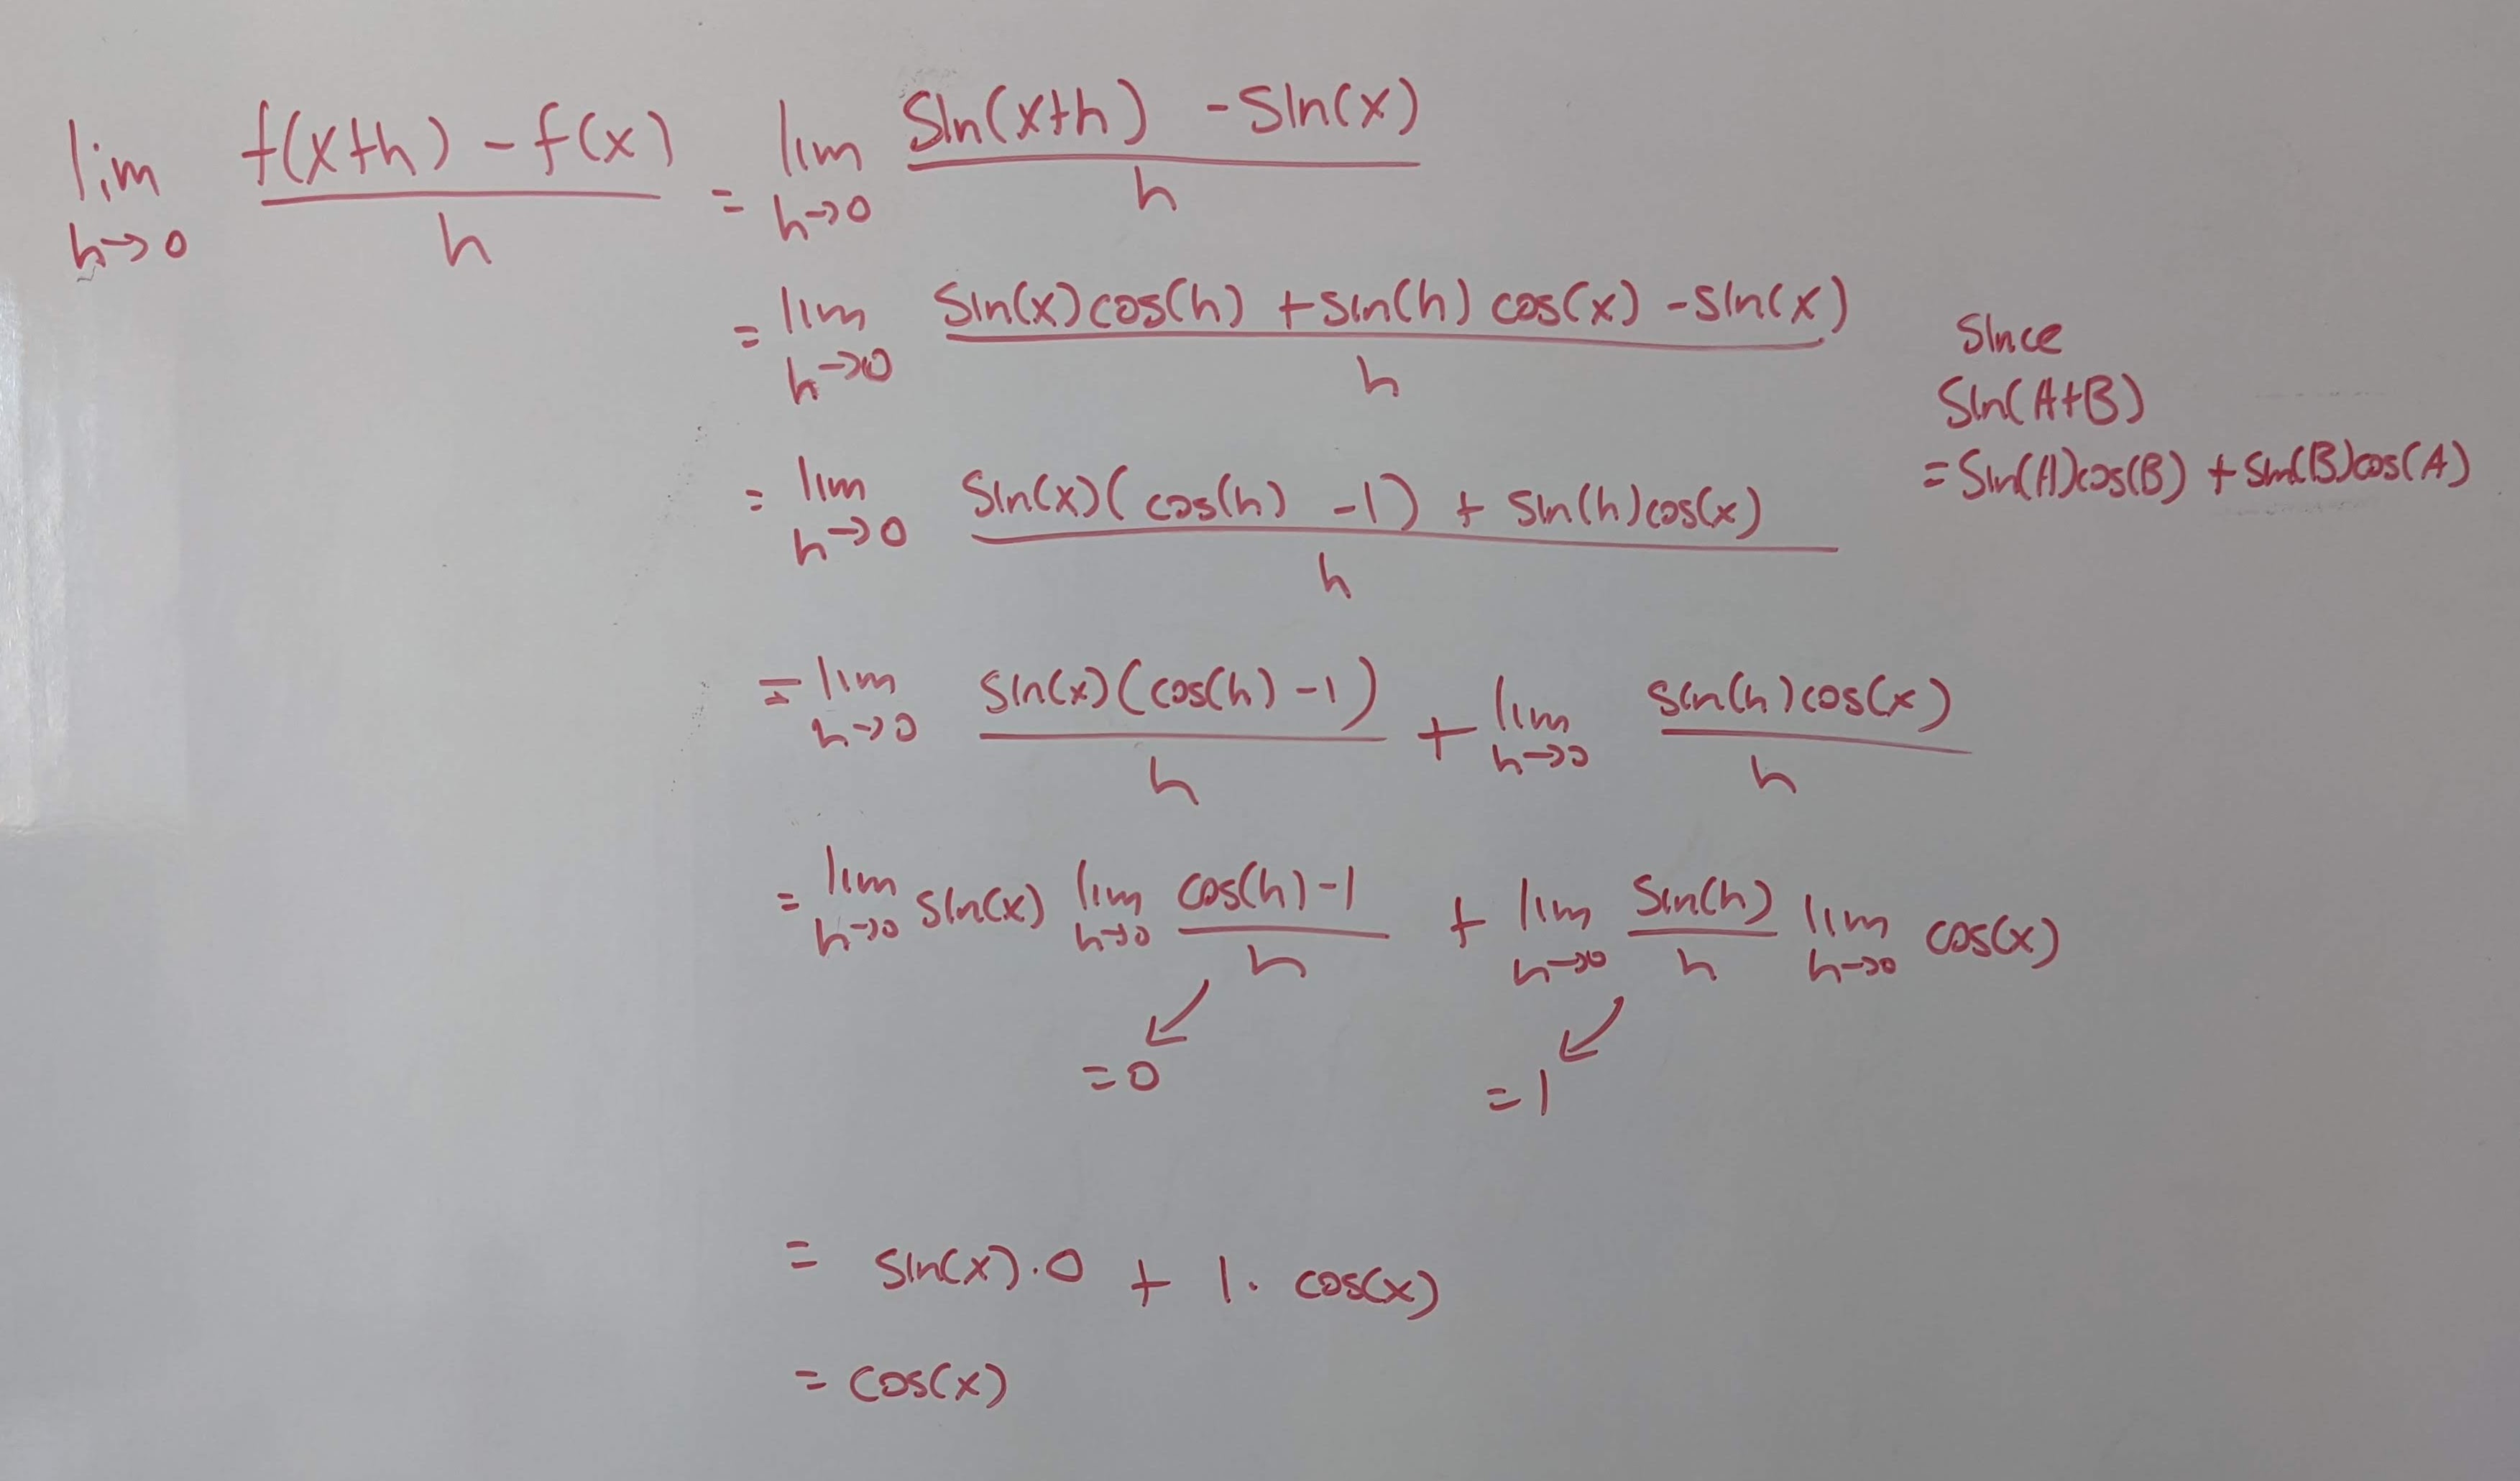 lim h→0 (f(x+h) - f(x))/h = lim h→0 (sin(x+h) - sin(x))/h
= lim h→0 (sin(x)cos(h) + sin(h)cos(x) - sin(x))/h
since
sin(A+B)
= sin(A)cos(B) + sin(B)cos(A)
= lim h→0 (sin(x)(cos(h) - 1) + sin(h)cos(x))/h
= lim h→0 (sin(x)(cos(h) - 1))/h + lim h→0 (sin(h)cos(x))/h
= lim h→0 sin(x) lim h→0 (cos(h) - 1)/h + lim h→0 sin(h)/h lim h→0 cos(x)
= 0 = 1
= sin(x)·0 + 1·cos(x)
= cos(x)